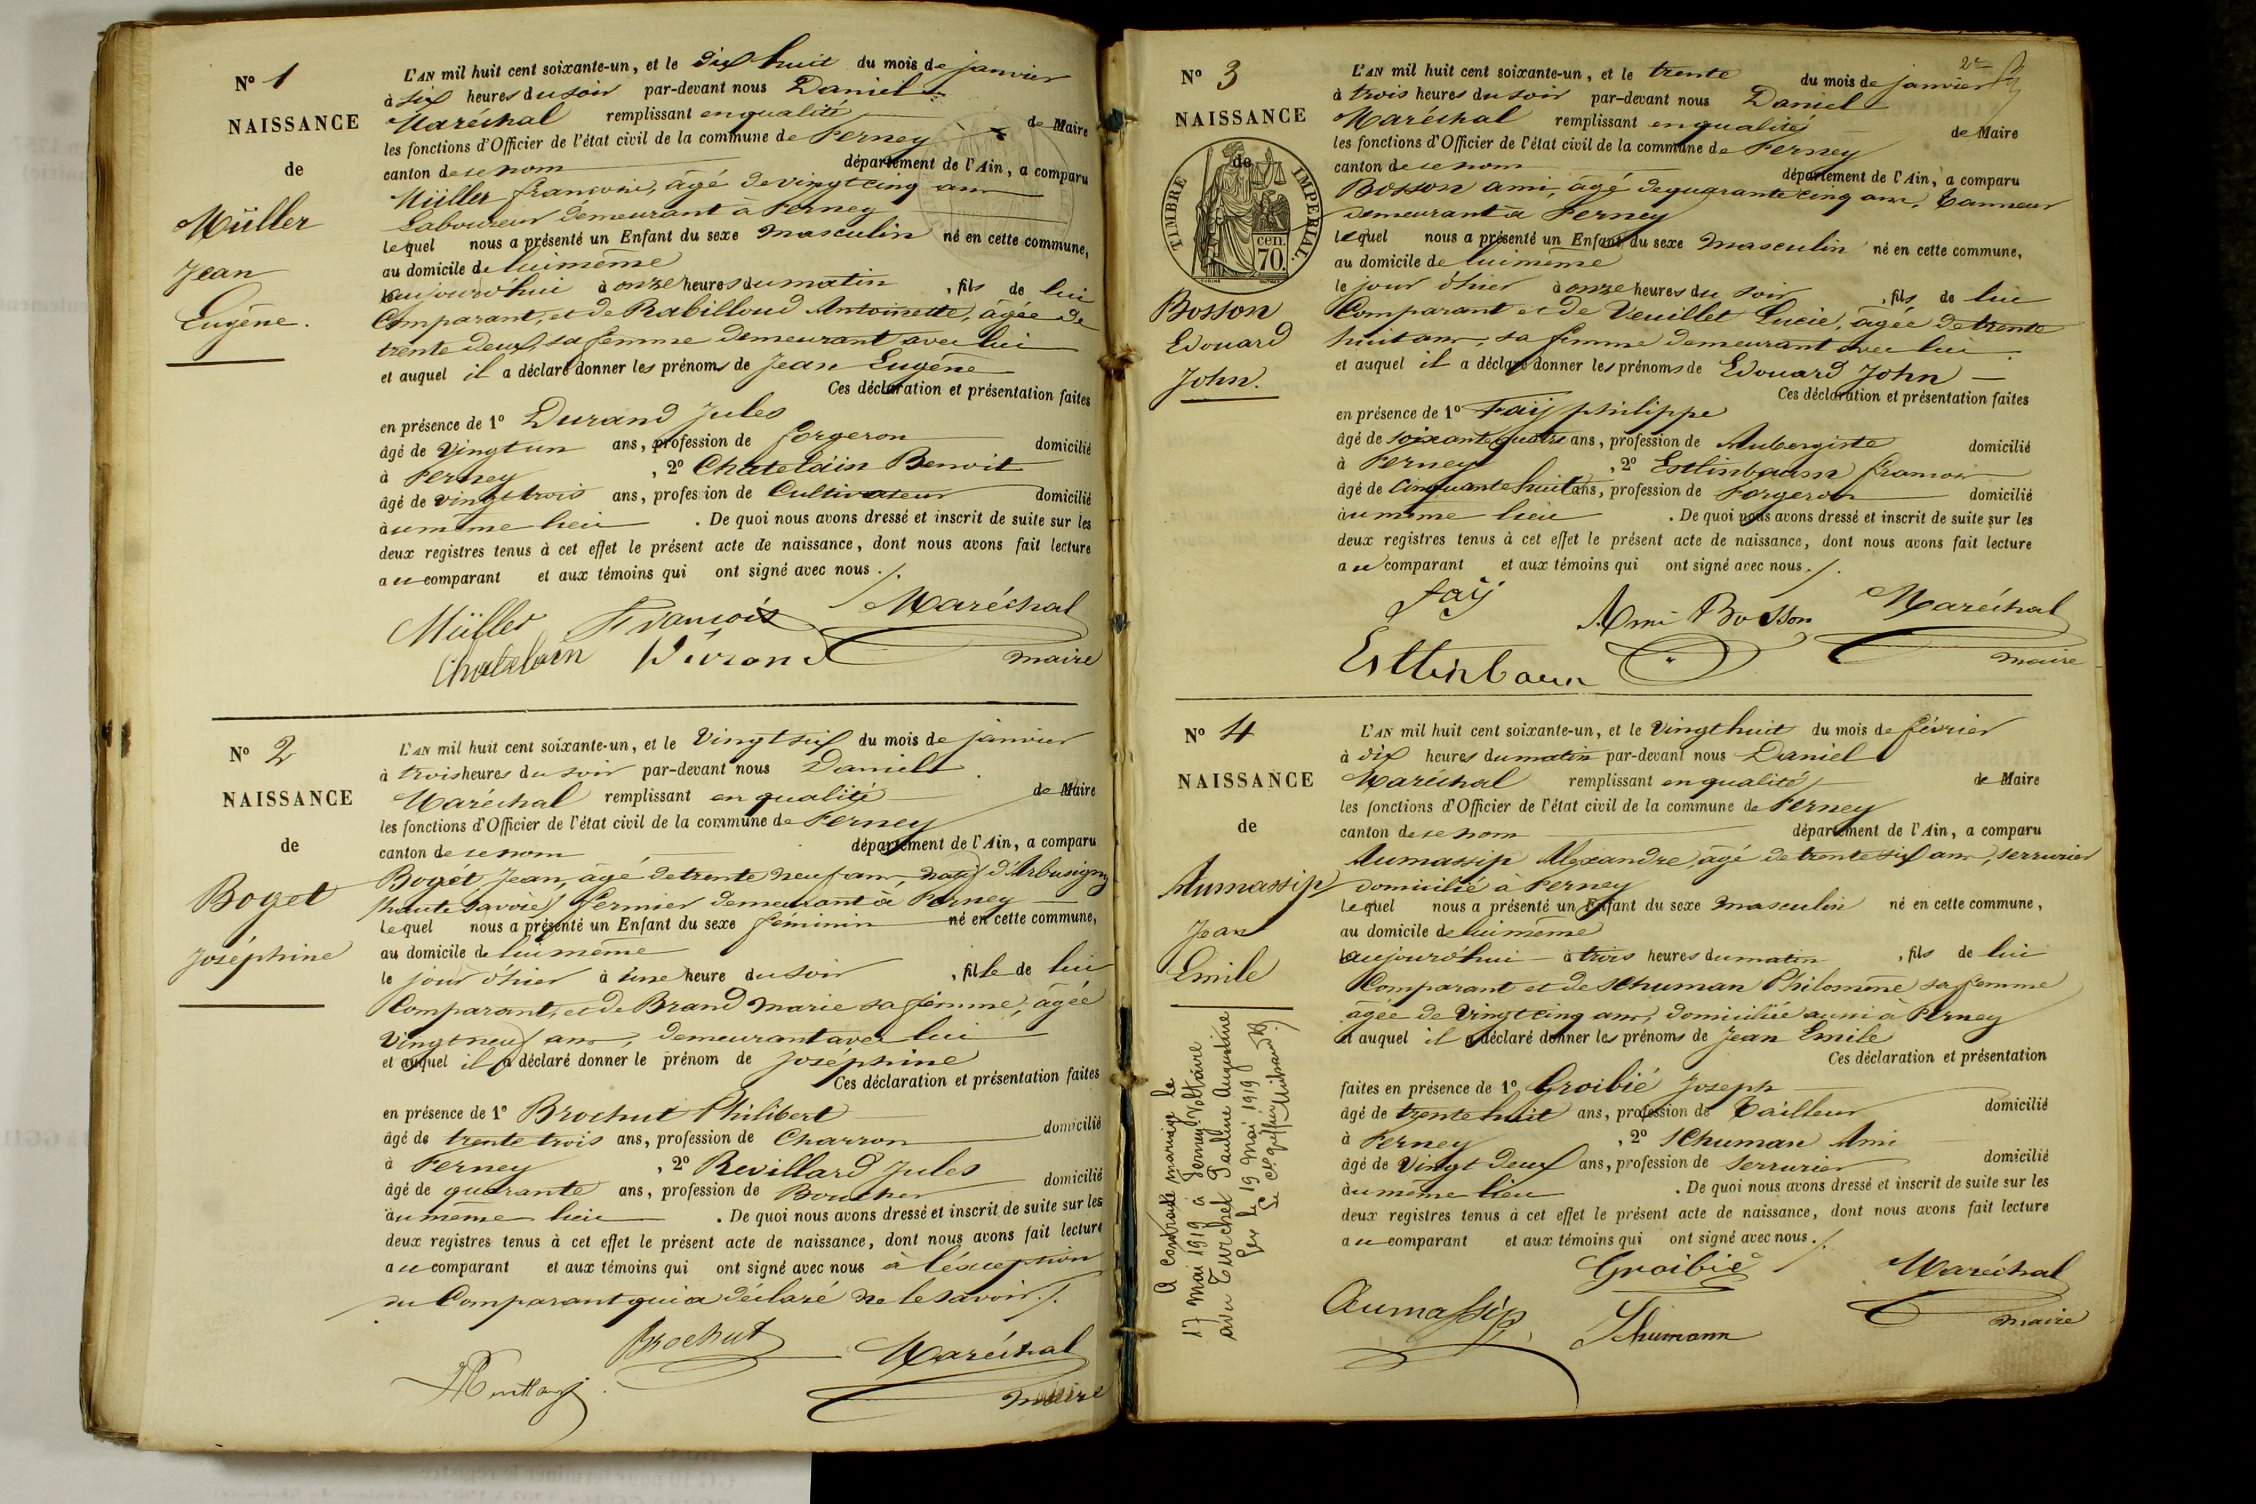 N° 1
NAISSANCE
de
Müller
Jean
Eugène.
L'AN mil huit cent soixante-un, et le dix huit du mois de janvier
à six heures du soir par-devant nous Daniel
Maréchal remplissant en qualité de Maire
les fonctions d'Officier de l'état civil de la commune de Ferney
canton de ce nom département de l'Ain, a comparu
Müller françois, âgé de vingt cinq ans
Laboureur demeurant à Ferney
lequel nous a présenté un Enfant du sexe masculin né en cette commune,
au domicile de lui même
aujourd'hui à onze heures du matin, fils de lui
Comparant, et de Rabilloud Antoinette, âgée de
trente deux, sa femme demeurant avec lui
et auquel il a déclaré donner les prénoms de Jean Eugène
Ces déclaration et présentation faites
en présence de 1° Durand Jules
âgé de vingt un ans, profession de forgeron domicilié
à Ferney, 2° Chatelain Benoit
âgé de vingt trois ans, profession de Cultivateur domicilié
au même lieu. De quoi nous avons dressé et inscrit de suite sur les
deux registres tenus à cet effet le présent acte de naissance, dont nous avons fait lecture
au comparant et aux témoins qui ont signé avec nous ./.
Müller François Maréchal
Chatelain Durand maire
N° 2
NAISSANCE
de
Boget
Joséphine
L'AN mil huit cent soixante-un, et le Vingt six du mois de janvier
à trois heures du soir par-devant nous Daniel
Maréchal remplissant en qualité de Maire
les fonctions d'Officier de l'état civil de la commune de Ferney
canton de ce nom département de l'Ain, a comparu
Bogét Jean, âgé de trente neuf ans, natif d'Arbusigny
(haute Savoie) fermier demeurant à Ferney
lequel nous a présenté un Enfant du sexe féminin né en cette commune,
au domicile de lui même
le jour d'hier à une heure du soir, fille de lui
Comparant, et de Brand Marie sa femme, âgée
Vingt neuf ans, demeurant avec lui
et auquel il a déclaré donner le prénom de Joséphine
Ces déclaration et présentation faites
en présence de 1° Brochut Philibert
âgé de trente trois ans, profession de Charron domicilié
à Ferney, 2° Revillard Jules
âgé de quarante ans, profession de Boucher domicilié
au même lieu. De quoi nous avons dressé et inscrit de suite sur les
deux registres tenus à cet effet le présent acte de naissance, dont nous avons fait lecture
au comparant et aux témoins qui ont signé avec nous à l'éxception
du Comparant qui a déclaré ne le savoir ./.
Brochut Maréchal
maire
2e
N° 3
NAISSANCE
de
TIMBRE IMPERIAL.
cen.
70.
Bosson
Edouard
John.
L'AN mil huit cent soixante-un, et le trente du mois de janvier
à trois heures du soir par-devant nous Daniel
Maréchal remplissant en qualité de Maire
les fonctions d'Officier de l'état civil de la commune de Ferney
canton de ce nom département de l'Ain, a comparu
Bosson ami, âgé de quarante cinq ans, tanneur
demeurant à Ferney
lequel nous a présenté un Enfant du sexe masculin né en cette commune,
au domicile de lui même
le jour d'hier à onze heures du soir, fils de lui
Comparant et de Veuillet Lucie, âgée de trente
huit ans, sa femme demeurant avec lui.
et auquel il a déclaré donner les prénoms de Edouard John
Ces déclaration et présentation faites
en présence de 1° Faÿ philippe
âgé de soixante quatre ans, profession de Aubergiste domicilié
à Ferney, 2° Estlinbaum françois
âgé de Cinquante huit ans, profession de Forgeron domicilié
au même lieu. De quoi nous avons dressé et inscrit de suite sur les
deux registres tenus à cet effet le présent acte de naissance, dont nous avons fait lecture
au comparant et aux témoins qui ont signé avec nous ./.
faÿ Ami Bosson Maréchal
Estlinbaum maire
N° 4
NAISSANCE
de
Aumassip
Jean
Emile
A contracté mariage le
17 mai 1919 à Ferney-Voltaire
avec Turchet Pauline Augustine
Gex le 19 mai 1919
Le Cis Greffier
L'AN mil huit cent soixante-un, et le Vingt huit du mois de février
à dix heures du matin par-devant nous Daniel
Maréchal remplissant en qualité de Maire
les fonctions d'Officier de l'état civil de la commune de Ferney
canton de ce nom département de l'Ain, a comparu
Aumassip Alexandre, âgé de trente six ans, serrurier
domicilié à Ferney
lequel nous a présenté un Enfant du sexe masculin né en cette commune,
au domicile de lui même
aujourd'hui à trois heures du matin, fils de lui
Comparant et de Schuman Philomène sa femme
âgée de Vingt cinq ans, domiciliée aussi à Ferney
et auquel il a déclaré donner les prénoms de Jean Emile
Ces déclaration et présentation
faites en présence de 1° Groibié Joseph
âgé de trente huit ans, profession de Tailleur domicilié
à Ferney, 2° Schuman Ami
âgé de Vingt deux ans, profession de Serrurier domicilié
au même lieu. De quoi nous avons dressé et inscrit de suite sur les
deux registres tenus à cet effet le présent acte de naissance, dont nous avons fait lecture
au comparant et aux témoins qui ont signé avec nous ./.
Groibié Maréchal
Aumassip Schumann maire